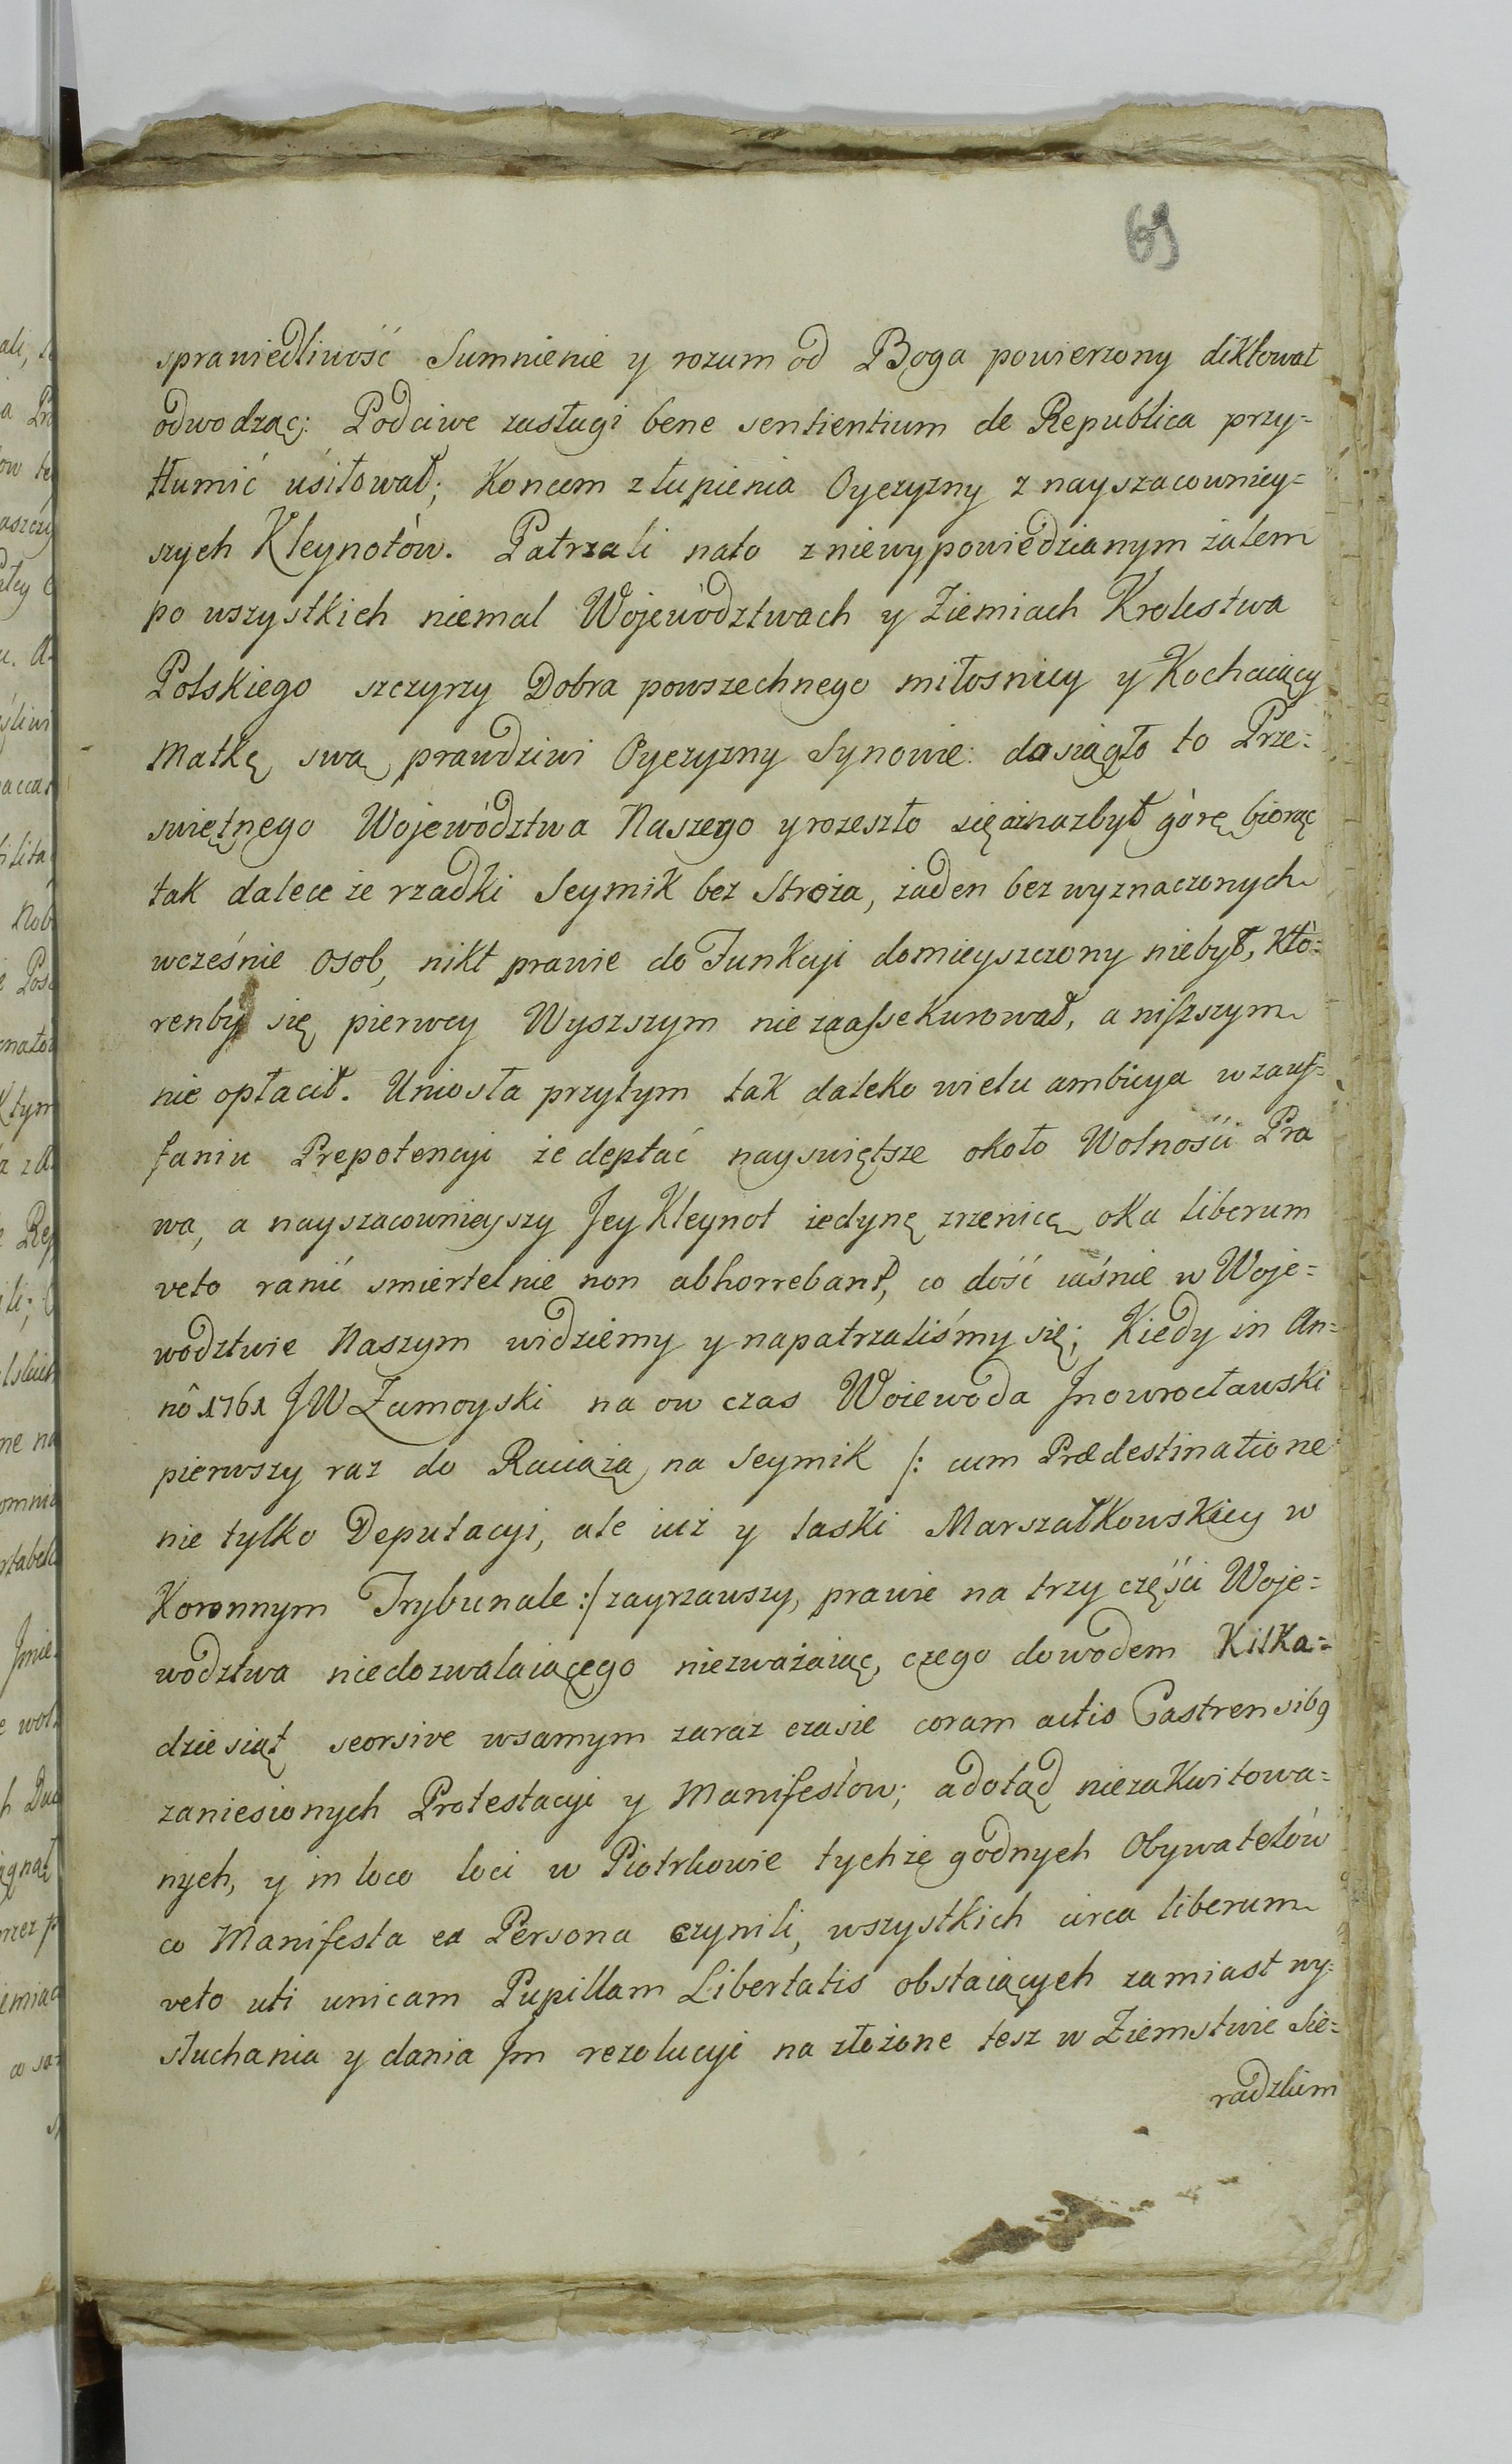 69
sprawiedliwość Sumnienie y rozum od Boga powierzony diktował
odwodząc: Podciwe zasługi bene sentientium de Republica przy=
tłumić uśiłował; Koncem złupienia Oyczyzny z nayszacowniey=
szych Kleynotów. Patrzali nato z niewypowiedzianym żalem
po wszystkich niemal Województwach y Ziemiach Krolestwa
Polskiego szczyrzy Dobra powszechnego miłosnicy y Kochaiący
Matkę swą prawdziwi Oyczyzny Synowie: dosiągło to Prze=
swiętnego Województwa Naszego y rozeszło się aż nazbyt górę biorąc
tak dalece że rzadki Seymik bez Stroża, żaden bez wyznaczonych
wcześnie osob, nikt prawie do Funkcyi domieyszczony niebył, Któ=
renby się pierwey Wyszszym nie zaassekurował, a niższym
nie opłacił. Uniosła przytym tak daleko wielu ambicya w zauf=
faniu Prepotencyi że deptać nayswiętsze około Wolnośći Pra
wa, a nayszacownieyszy Jey Kleynot iedynę zrzenicę oka liberum
veto ranić smiertelnie non abhorrebant, co dość iaśnie w Woje=
wodztwie Naszym widziemy y napatrzaliśmy się; Kiedy in An=
nô 1761 JW Zamoyski na ow czas Woiewoda Jnowrocławski
pierwszy raz do Raciąża na Seymik /: cum Prædestinatione
nie tylko Deputacyi, ale iuż y laski Marszałkowskiey w
Koronnym Trybunale :/ zayrzawszy, prawie na trzy częśći Woje=
wodztwa niedozwalaiącego niezważaiąc, czego dowodem Kilka=
dziesiąt seorsive w samym zaraz czasie coram actis Castrensibꝰ
zaniesionych Protestacyi y Manifestow; a dotąd niezakwitowa=
nych, y in loco loci w Piotrkowie tychże godnych Obywatelów
co Manifesta ex Persona czynili, wszystkich circa liberum
veto uti unicam Pupillam Libertatis obstaiących zamiast wy=
słuchania y dania Jm rezolucyi na złożone tesz w Ziemstwie Sie=
radzkim